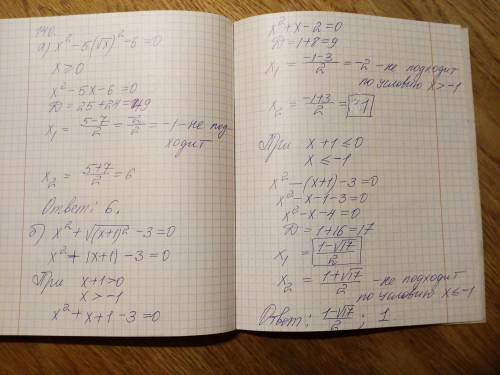 140.
а) x² - 5(√x)² - 6 = 0
x ≥ 0
x² - 5x - 6 = 0
D = 25 + 24 = 49
x₁ = (5-7)/2 = -2/2 = -1 - не под-
ходит
x₂ = (5+7)/2 = 6
Ответ: 6.
б) x² + √(x+1)² - 3 = 0
x² + |x+1| - 3 = 0
При x+1 > 0
x > -1
x² + x + 1 - 3 = 0
x² + x - 2 = 0
D = 1 + 8 = 9
x₁ = (-1-3)/2 = -2 - не подходит
по условию x > -1
x₂ = (-1+3)/2 = 1
При x + 1 ≤ 0
x ≤ -1
x² - (x+1) - 3 = 0
x² - x - 1 - 3 = 0
x² - x - 4 = 0
D = 1 + 16 = 17
x₁ = (1-√17)/2
x₂ = (1+√17)/2 - не подходит
по условию x ≤ -1
Ответ: (1-√17)/2 ; 1